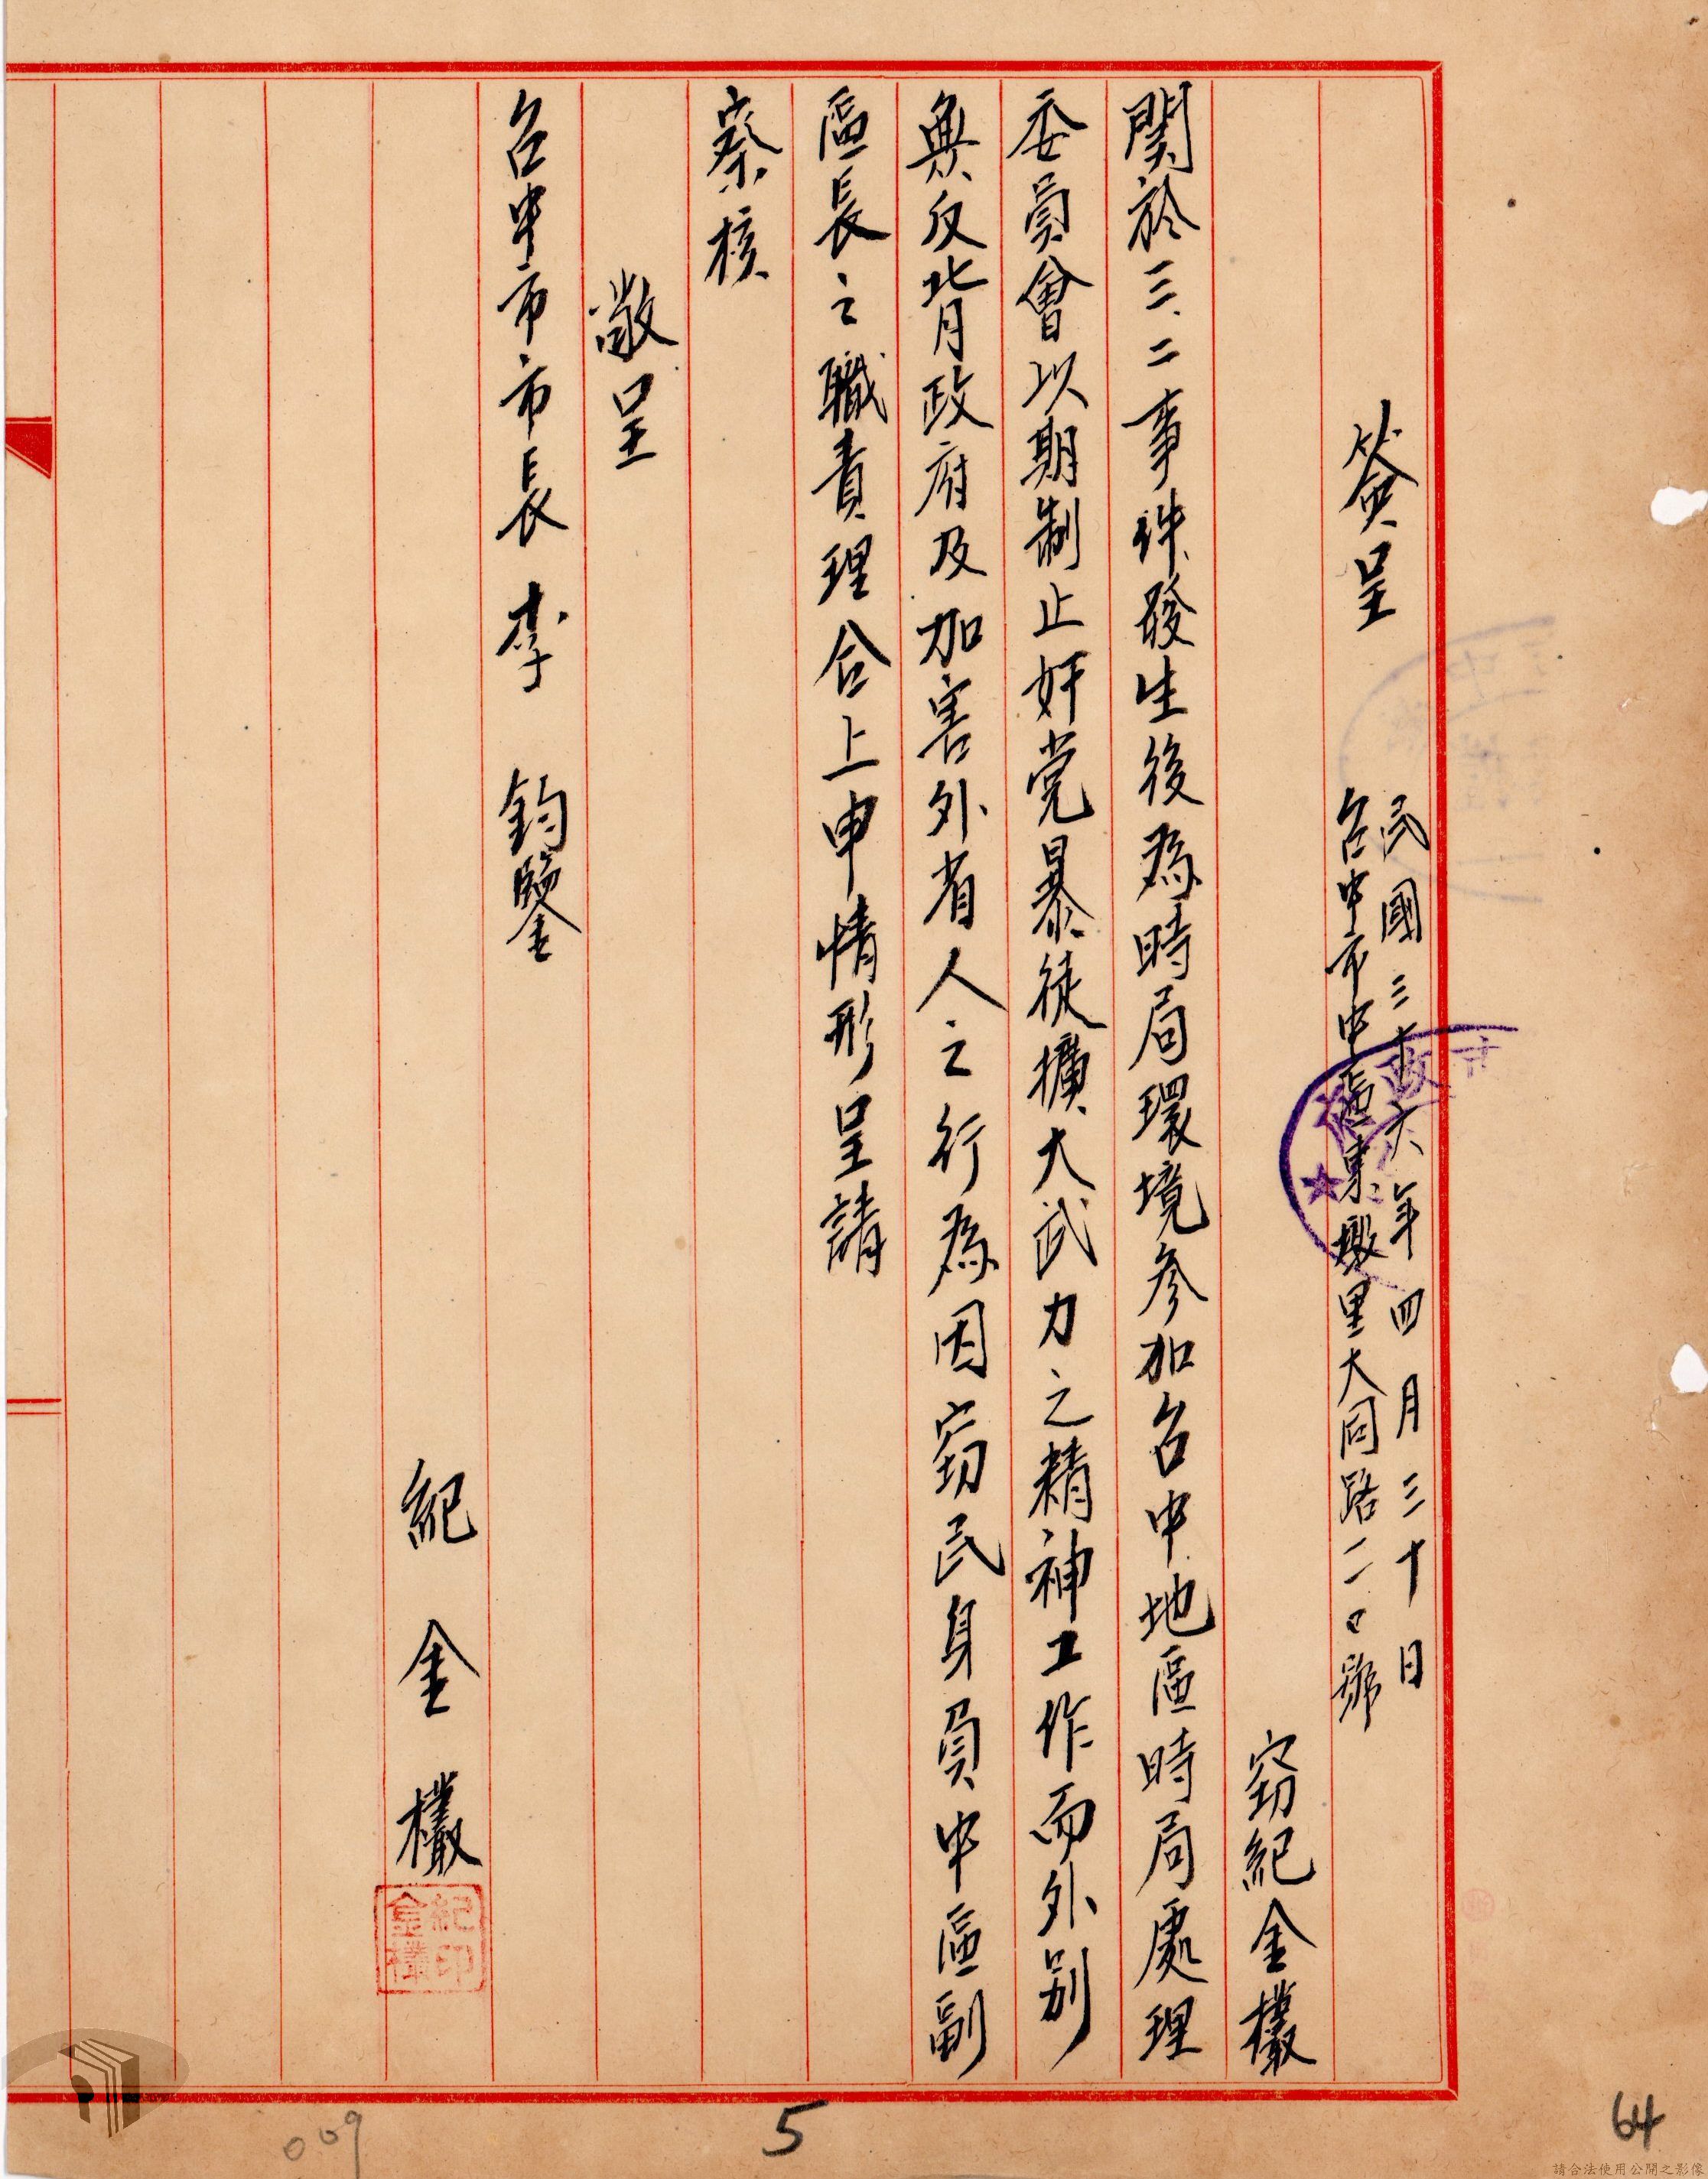 簽呈
民國三十六年四月三十日
台中市中區東墩里大同路二〇號
竊紀金欉
関於三.二事件發生後為時局環境參加台中地區時局處理
委員會以期制止奸党暴徒擴大武力之精神工作而外別
無反背政府及加害外省人之行為因竊民身員中區副
區長之職責理合上申情形呈請
察核
敬呈
台中市市長李 鈞鑒
紀金欉
紀金欉印
市政
009
5
64
請合法使用公開之影像